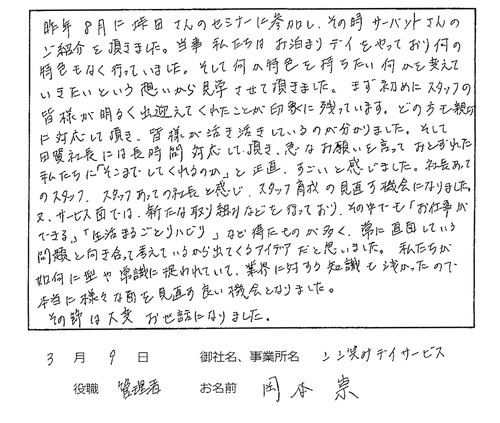 昨年8月に坪田さんのセミナーに参加し、その時サーバントさんの
ご紹介を頂きました。当事私たちはお泊まりデイをやっており何の
特色もなく行っていました。そして何か特色を持ちたい何かを変えて
いきたいという想いから見学させて頂きました。まず初めにスタッフの
皆様が明るく出迎えてくれたことが印象に残っています。どの方も親切
に対応して頂き、皆様が活き活きしているのが分かりました。そして
田賀社長には長時間対応して頂き、急なお願いを言っておとずれた
私たちに「そこまでしてくれるのか」と正直、すごいと感じました。社長あって
のスタッフ、スタッフあっての社長と感じ、スタッフ育成の見直す機会になりました。
又、サービス面では、新たな取り組みなどを行っており、その中でも「お仕事が
できる」、「生活まるごとリハビリ」など得たものが多く、常に直面している
問題と向き合って考えているから出てくるアイデアだと思いました。私たちが
如何に型や常識に捉われていて、業界に対する知識も浅かったので
本当に様々な面を見直す良い機会となりました。
その節は大変お世話になりました。
3月9日 御社名、事業所名 笑みデイサービス
役職 管理者 お名前 岡本 崇